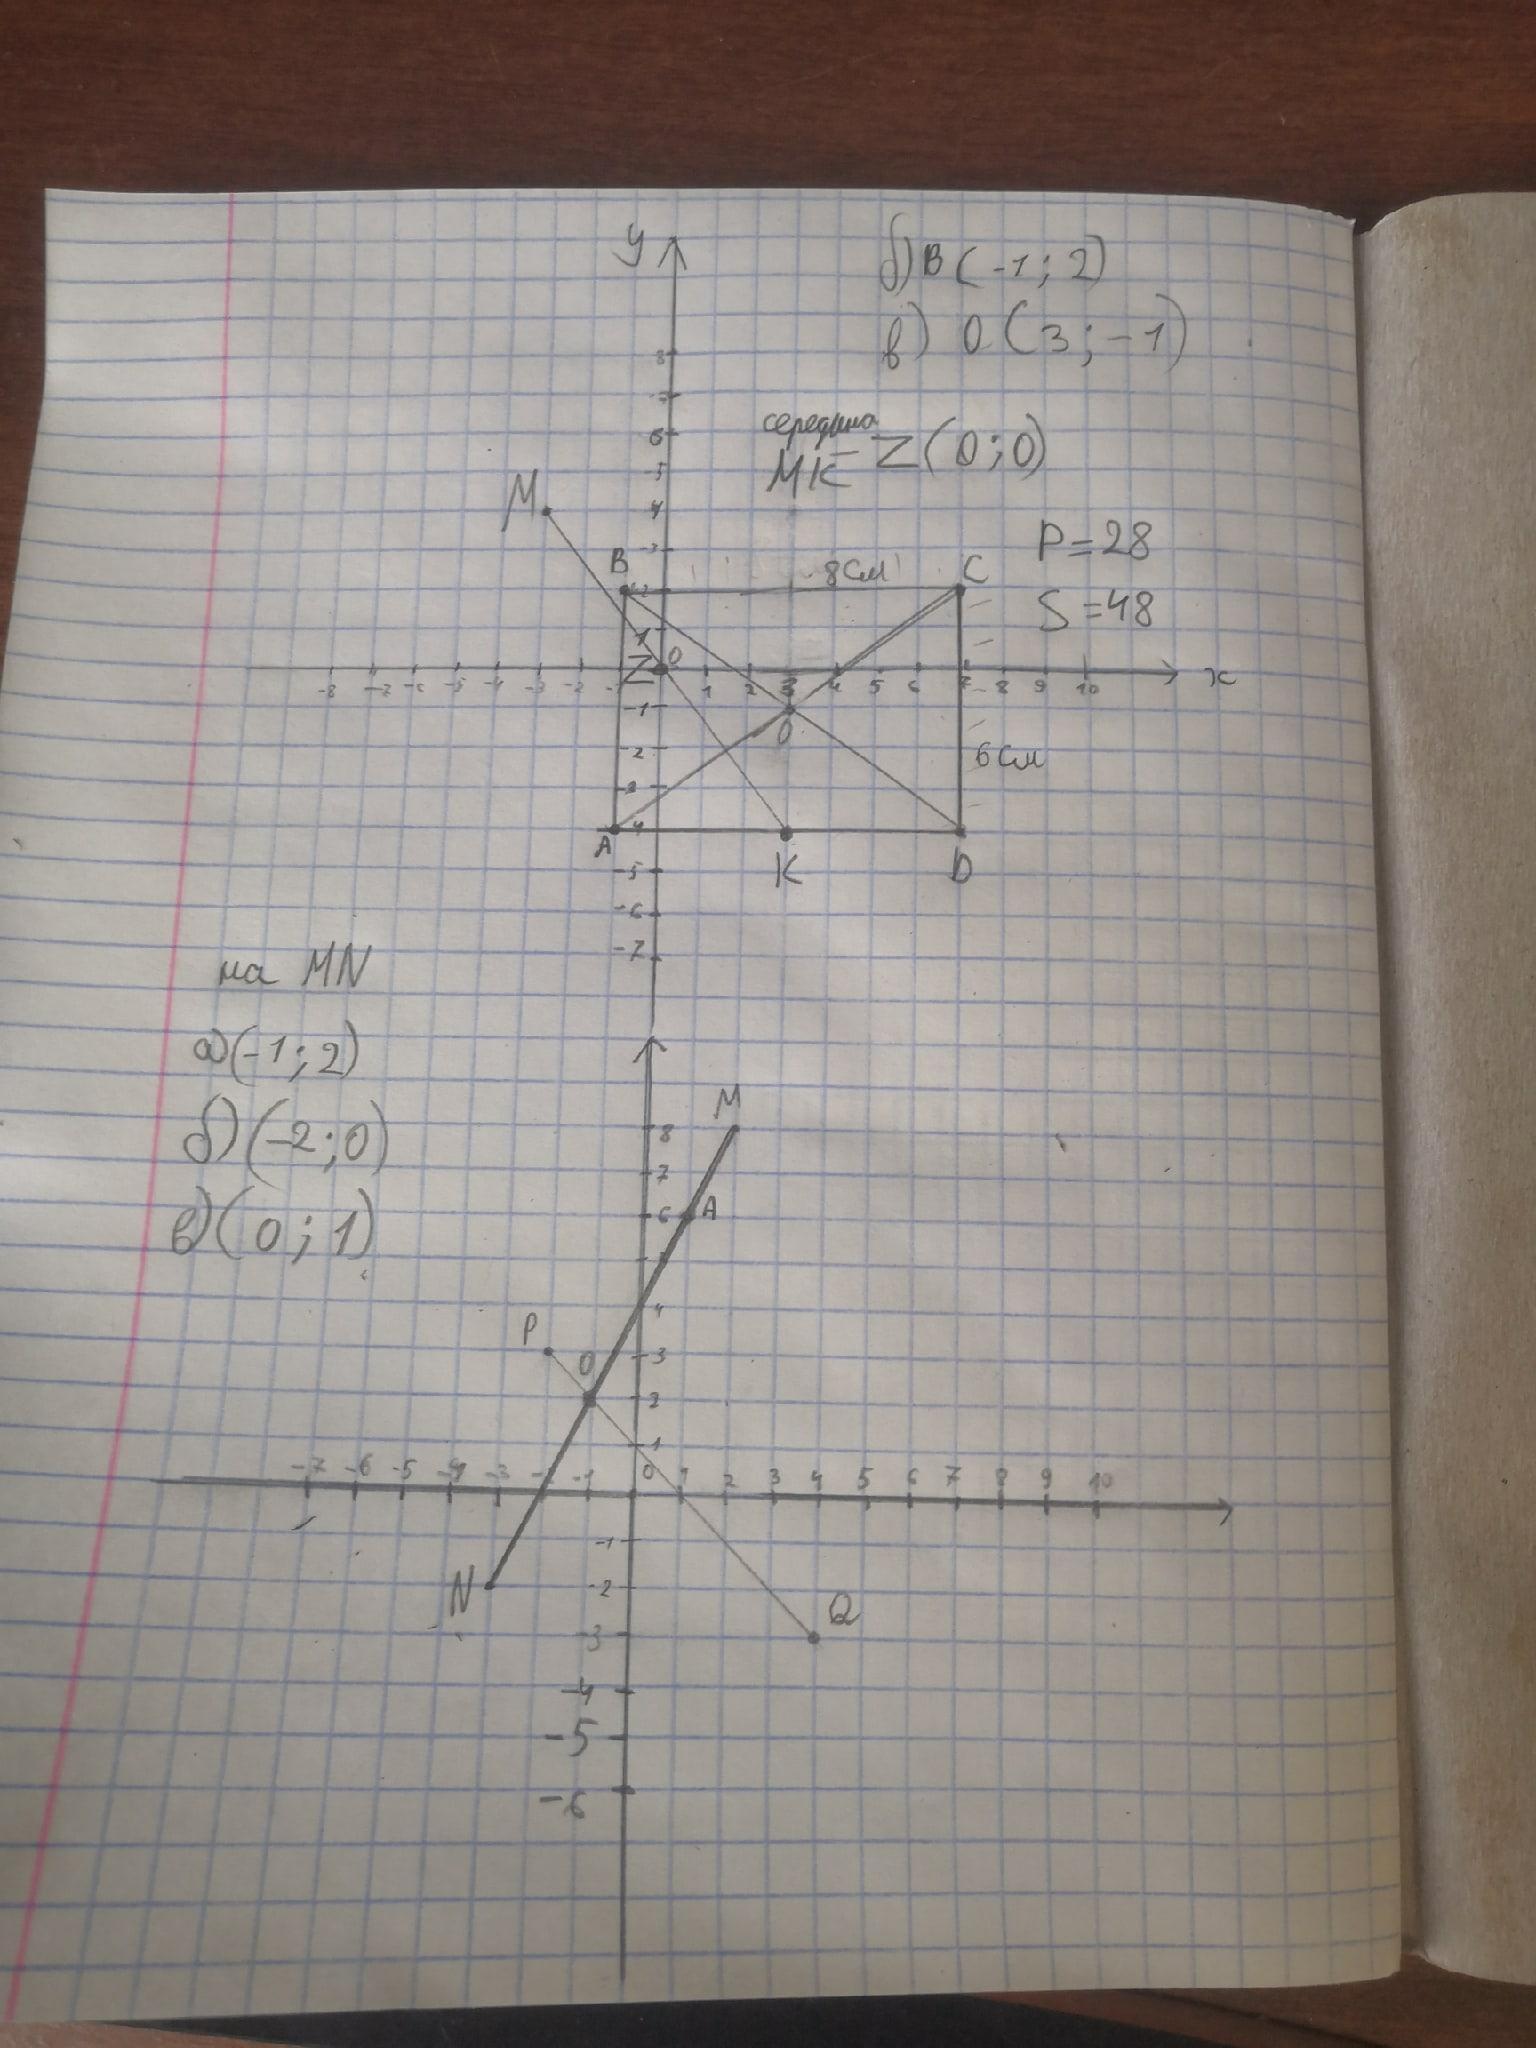 y
б) B (-1; 2)
в) O (3; -1)
8
7
6
середина
MK - Z(0;0)
5
M
4
3
P=28
B
2
8 см
C
S=48
1
Z
0
-8 -7 -6 -5 -4 -3 -2 -1 1 2 3 4 5 6 7 8 9 10 x
-1
O
-2
6 см
-3
-4
A
K
D
-5
-6
-7
на MN
а) (-1; 2)
M
б) (-2; 0)
8
7
6
A
в) (0; 1)
4
P
3
O
2
1
-7 -6 -5 -4 -3 -2 -1 0 1 2 3 4 5 6 7 8 9 10
-1
N
-2
Q
-3
-4
-5
-6